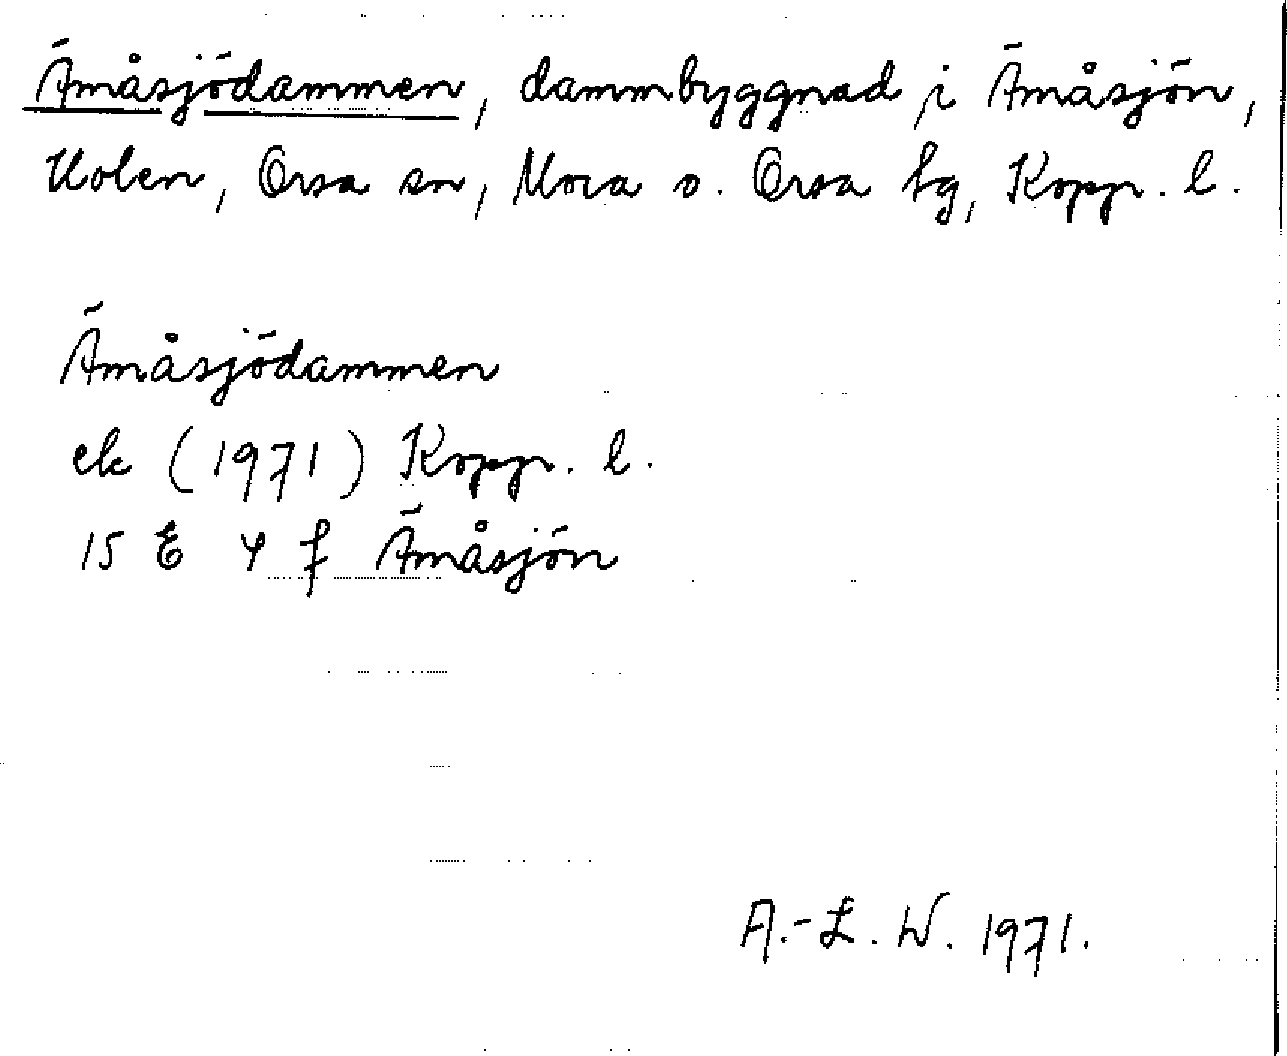 Ämåsjödammen, dammbyggnad i Ämåsjön,
Nolen, Orsa sn, Mora o. Orsa tg, Kopp. l.
Ämåsjödammen
ek (1971) Kopp. l.
15 E 4 f Ämåsjön
A.-L. W. 1971.